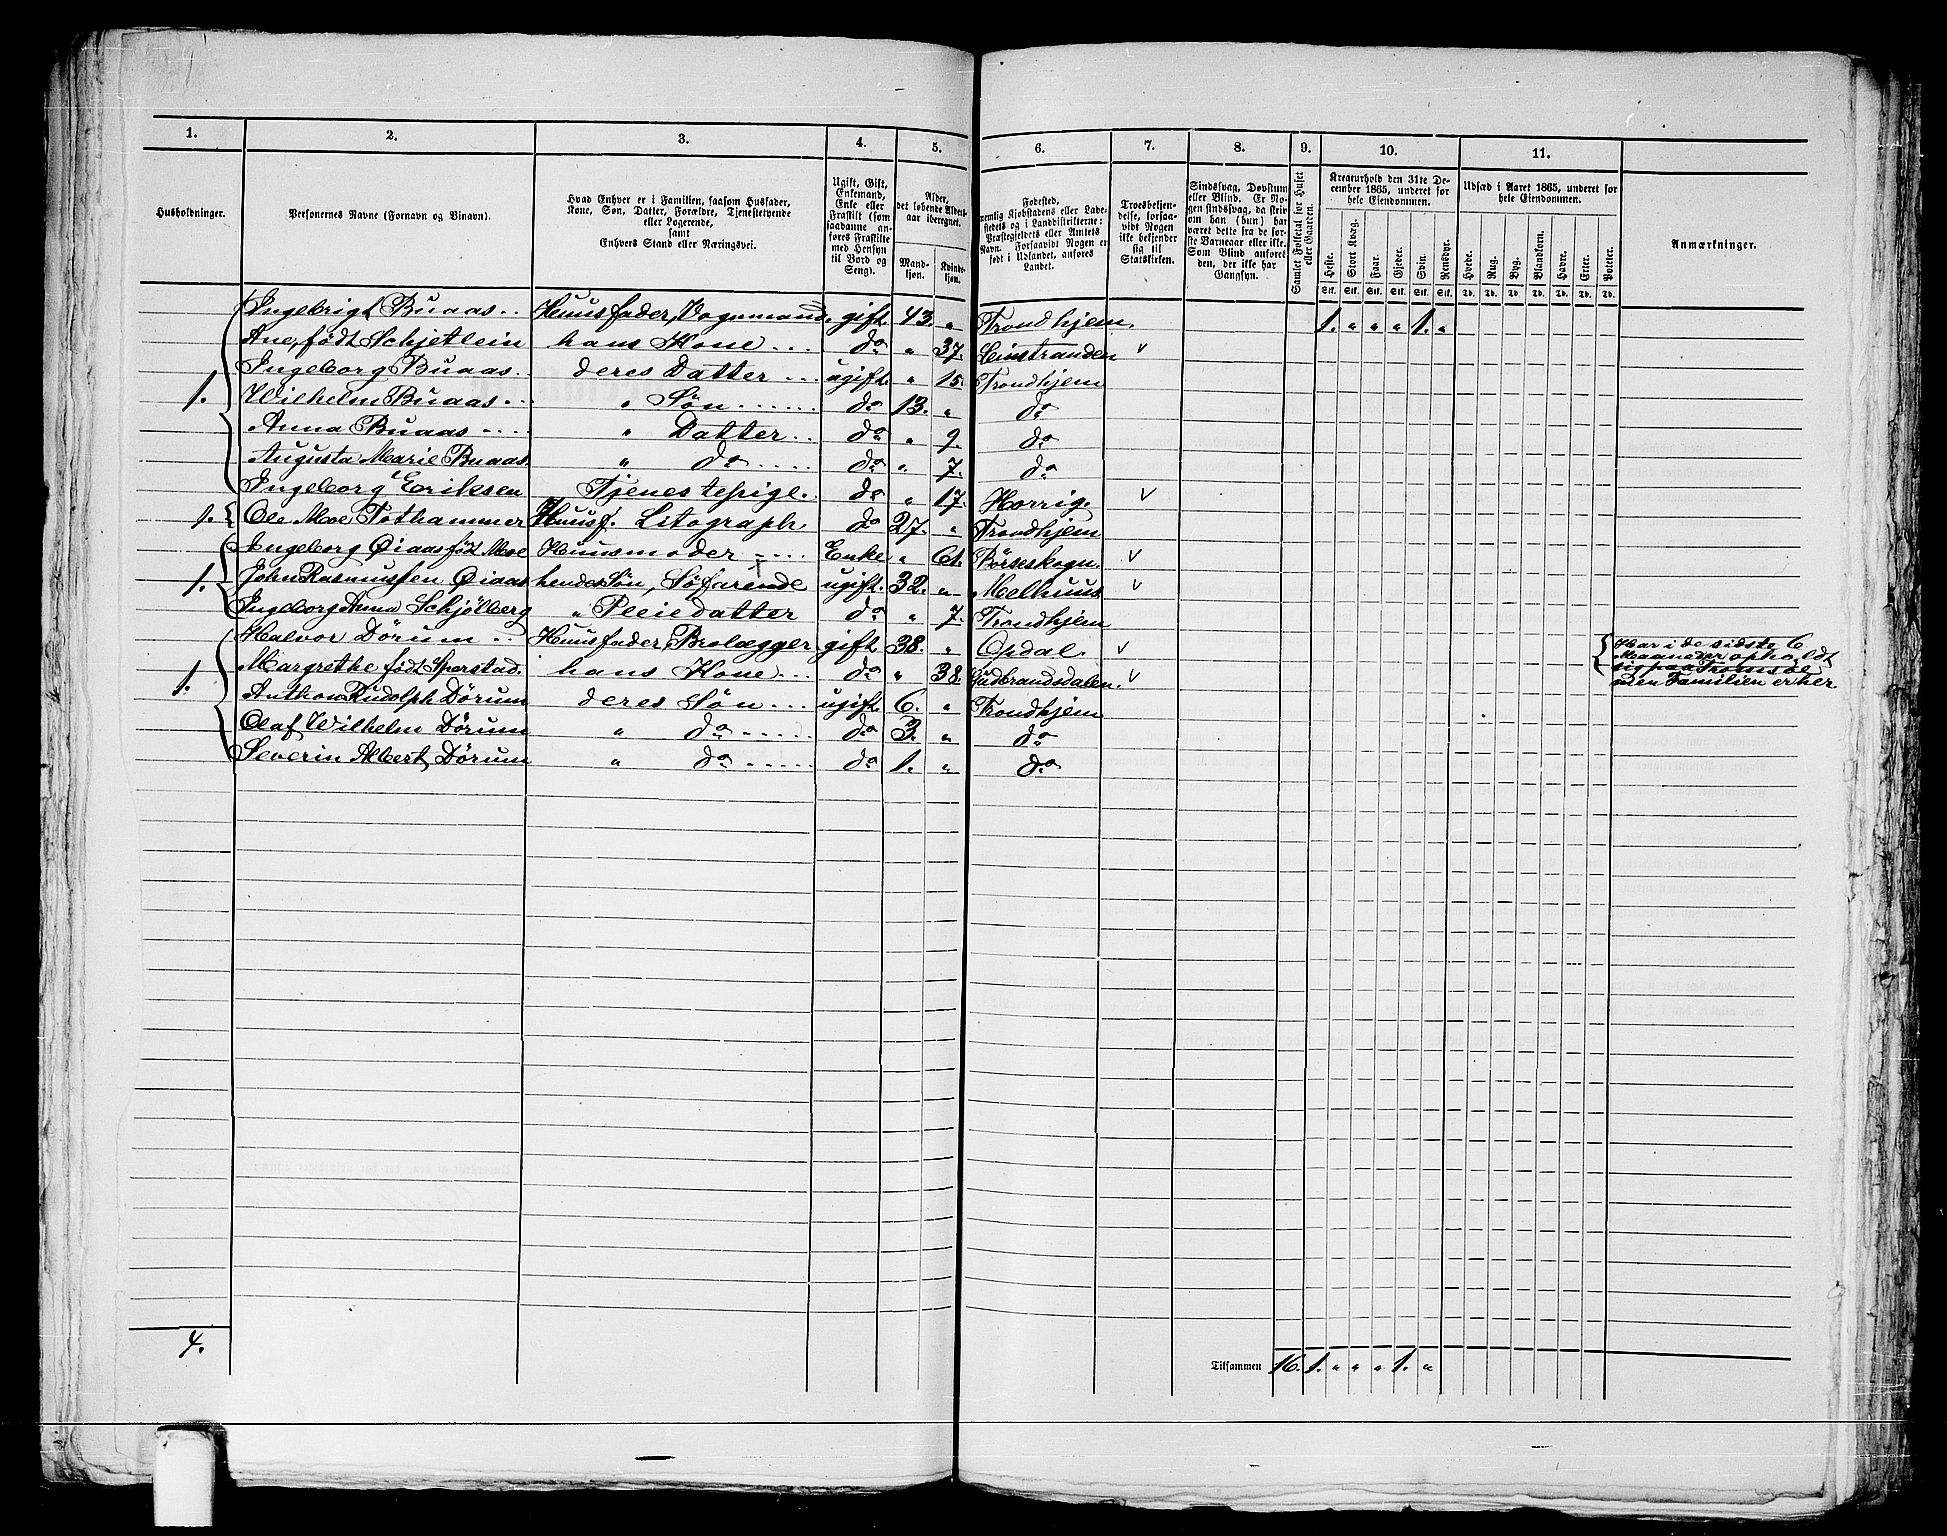 1. 2. 3. 4. 5. 6. 7. 8. 9. 10. 11.
Husholdninger.
Personernes Navne (Fornavn og Binavn).
Hvad Enhver er i Familien, saasom Husfader,
Kone, Søn, Datter, Forældre, Tjenestetyende
eller Logerende,
samt
Enhvers Stand eller Næringsvei.
Ugift, Gift,
Enkemand,
Enke eller
Fraskilt (som
saadanne an-
føres Fraskilte
med Hensyn
til Bord og
Seng).
Alder,
det løbende Alders-
aar iberegnet.
Mand-
kjøn.
Kvinde-
kjøn.
Fødested,
nemlig Kjøbstadens eller Lade-
stedets og i Landdistrikterne:
Præstegjeldets eller Amtets
Navn. Forsaavidt Nogen er
født i Udlandet, anføres
Landet.
Troesbekjen-
delse, forsaa-
vidt Nogen
ikke bekjender
sig til
Statskirken.
Sindssvag, Døvstum
eller Blind. Er No-
gen sindssvag, da skriv
om han (hun) har
været dette fra de før-
ste Barneaar eller ikke.
Som Blind anføres
den, der ikke har
Gangsyn.
Samlet Folketal for Huset
eller Gaarden.
Kreaturhold den 31te De-
cember 1865, underet for
hele Eiendommen.
Heste. Stort Kvæg. Faar. Gjeder. Svin. Rensdyr.
Stk. Stk. Stk. Stk. Stk. Stk.
Udsæd i Aaret 1865, underet for
hele Eiendommen.
Hvede. Rug. Byg. Blandkorn. Havre. Erter. Poteter.
Td. Td. Td. Td. Td. Td. Td.
Anmærkninger.
Ingebrigt Buaas.. Huusfader, Vognmand. gift. 43. „ Trondhjem. 1. „ „ „ 1. „
Ane, født Schjetlein hans Kone ... do „ 37. Leinstranden v
Ingeborg Buaas. deres Datter ... ugift. „ 15. Trondhjem
1. Wilhelm Buaas... „ Søn ...... do 13. „ do
Anna Buaas .... „ Datter.. do „ 9. do
Augusta Marie Buaas. „ do .... do „ 7. do
Ingeborg Eriksen Tjenestepige. do „ 17. Horrig. v
1. Ole Moe Tothammer Huusf. Litograph do 27. „ Trondhjem
Ingeborg Øiaas født Moe Huusmoder .... Enke „ 61. Børseskogn. v
1. John Rasmussen Øiaas hendes Søn, Søfarende ugift. 32. „ Melhuus v
Ingeborg Anna Schjølberg „ Pleiedatter do „ 7. Trondhjem
Halvor Dørum .. Huusfader Brolægger gift 38. „ Opdal. v
Margrethe født Sparstad. hans Kone... do „ 38. Gudbrandsdalen. v
1. Anthon Rudolph Dørum deres Søn ... ugift 6. „ Trondhjem
Olaf Wilhelm Dørum „ do ..... do 3. „ do
Severin Albert Dørum „ do ..... do 1. „ do
Har i de sidste 6
Maaneder opholdt
sig paa Tromsøe
men Familien er her
4.
Tilsammen 16. 1. „ „ „ 1. „